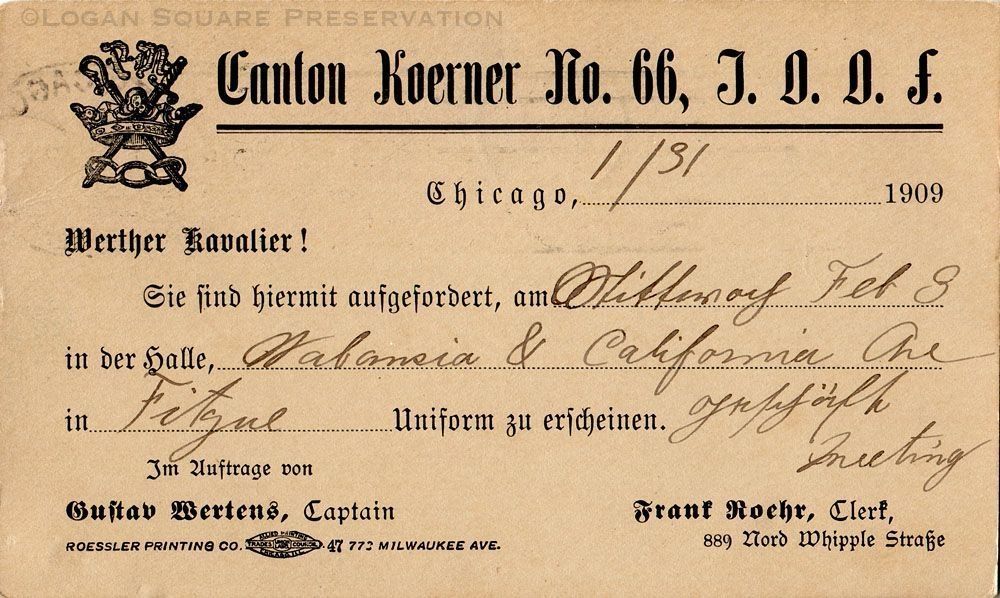 ©Logan Square Preservation
Canton Koerner No. 66, I. O. O. F.
Chicago, 1/31 1909
Werther Kavalier!
Sie sind hiermit aufgefordert, am Mittwoch Feb 3
in der Halle, Wabansia & California Ave
in Uniform zu erscheinen. geschäfts
meeting
Im Auftrage von
Gustav Mertens, Captain
Frank Roehr, Clerk,
ROESSLER PRINTING CO. ALLIED PRINTING TRADES COUNCIL CHICAGO, ILL. 47 772 MILWAUKEE AVE.
889 Nord Whipple Straße